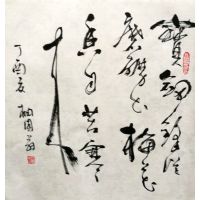 寶劍鋒從
磨礪出梅花
香自苦寒
來
丁酉夏